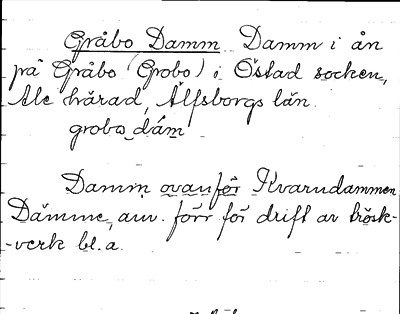 Gråbo Damm Damm i ån
på Gråbo (Grobo) i Östad socken,
Ale härad, Älfsborgs län.
grobo dám
Damm ovanför Kvarndammen
Dämme, anv. förr för drift av trösk-
-verk bl. a.